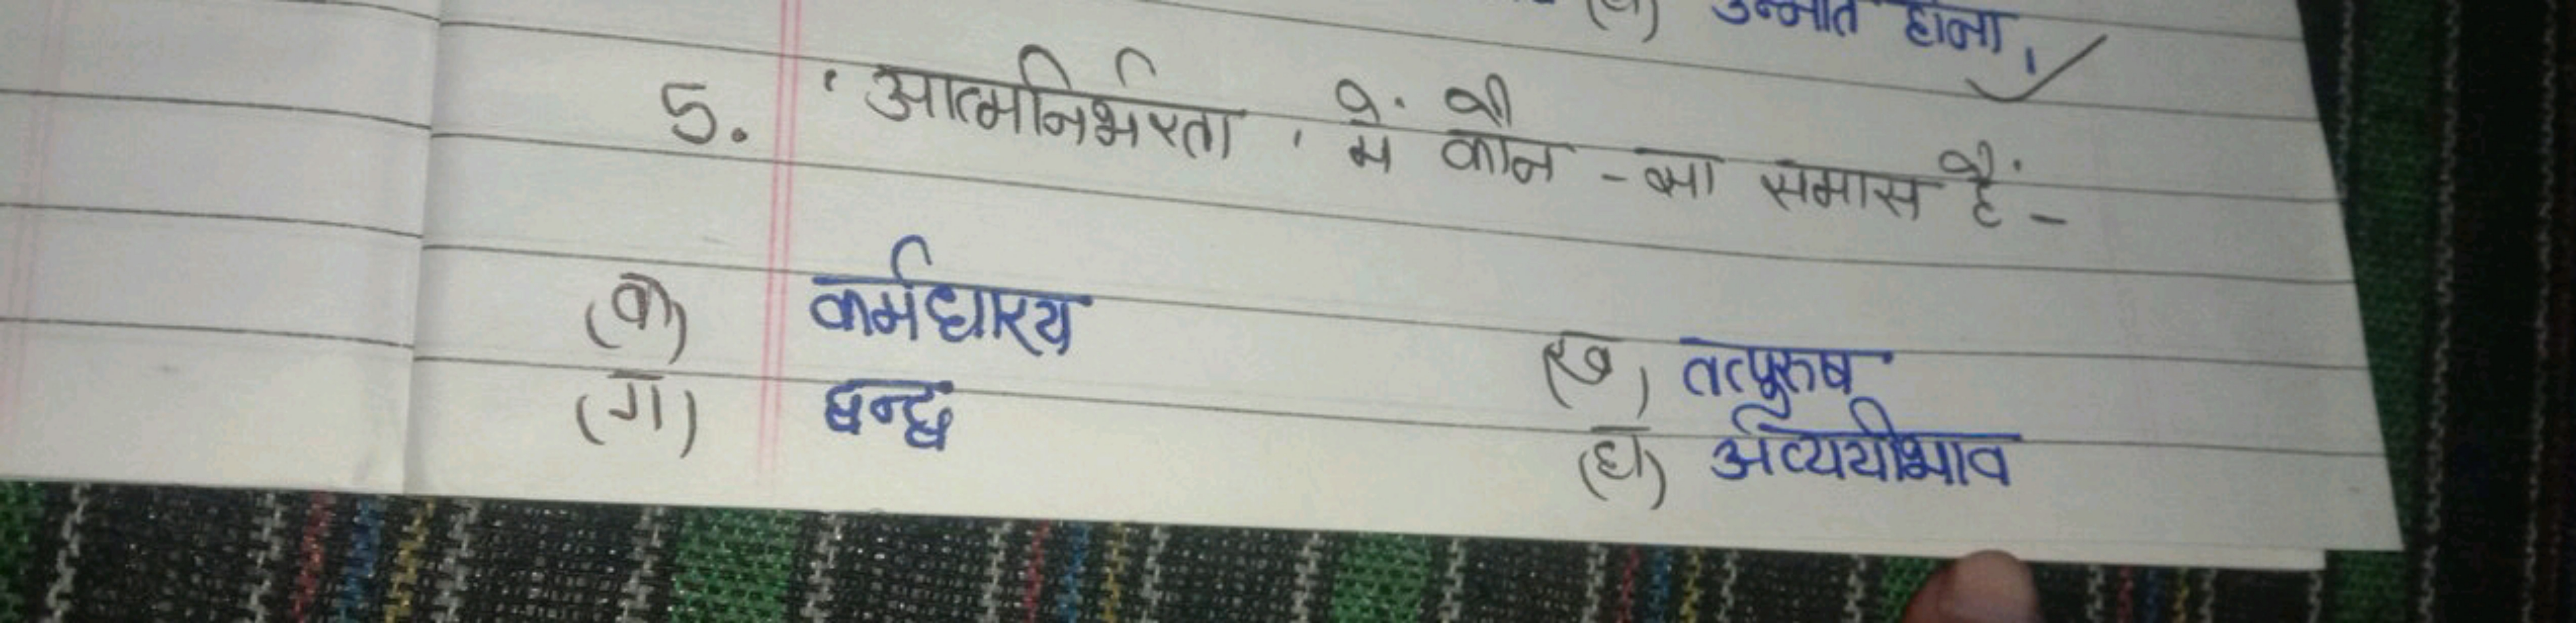 उन्नति होना,
5. 'आत्मनिर्भरता' में कौन -सा समास हैं -
(क) कर्मधारय (ख) तत्पुरुष
(ग) द्वन्द्व (घ) अव्ययीभाव